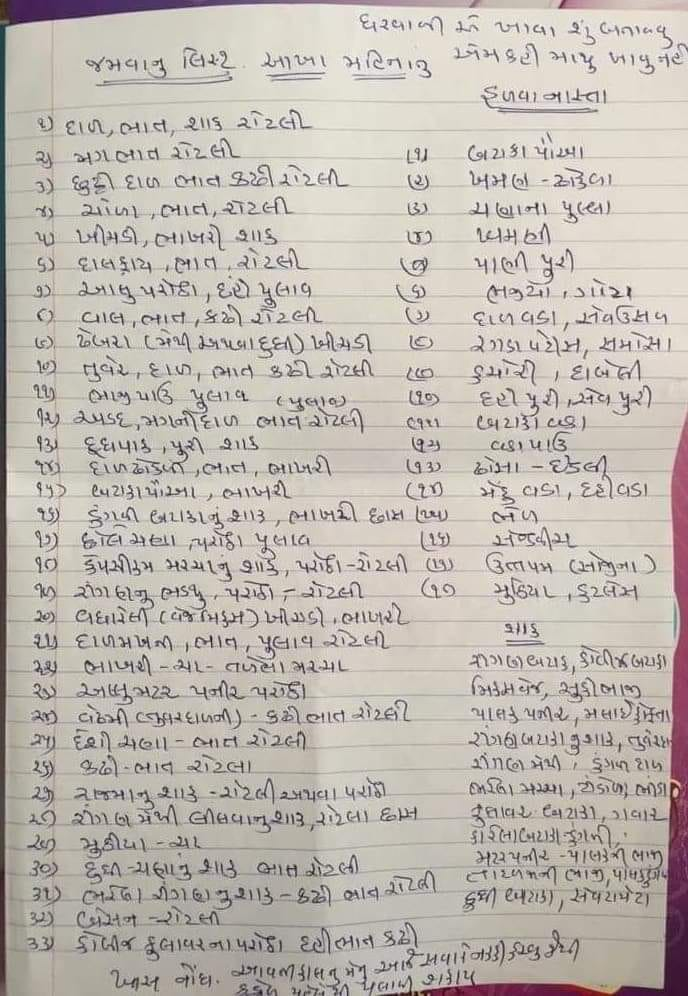 ઘરવાળી એ ખાવા શું બનાવવુ
એમ કહી માથુ ખાવુ નહી
જમવાનુ લિસ્ટ આખા મહિનાનુ
હળવા નાસ્તા
૧) દાળ, ભાત, શાક રોટલી
૨) મગ ભાત રોટલી
(૧) બટાકા પૌંઆ
૩) છુટ્ટી દાળ ભાત કઢી રોટલી
(૨) ખમણ - ઢોકળા
૪) ચોળા, ભાત, રોટલી
(૩) ચણાના પુલ્લા
૫) ખીચડી, ભાખરી શાક
(૪) ખમણી
૬) દાલફ્રાય, ભાત, રોટલી
(૫) પાણી પુરી
૭) આલુ પરોઠા, દહીં પુલાવ
(૬) ભજીયા, ગોટા
૮) વાલ, ભાત, કઢી રોટલી
(૭) દાળ વડા, સેવઉસળ
૯) ઢેબરા (મેથી અથવા દુધી) ખીચડી
(૮) રગડા પેટીસ, સમોસા
૧૦) તુવેર, દાળ, ભાત કઢી રોટલી
(૯) કચોરી, દાબેલી
૧૧) ભાજીપાઉ પુલાવ (પુલાવ)
(૧૦) દહી પુરી, સેવ પુરી
૧૨) અડદ, મગની દાળ ભાત રોટલી
(૧૧) બટાકા વડા
૧૩) દૂધપાક, પુરી શાક
(૧૨) વડા પાઉ
૧૪) દાળઢોકળી, ભાત, ભાખરી
(૧૩) ઢોસા - ઈડલી
૧૫) બટાકાપૌંઆ, ભાખરી
(૧૪) મેંદુ વડા, દહીવડા
૧૬) ડુંગળી બટાકાનું શાક, ભાખરી છાસ
(૧૫) ભેળ
૧૭) છોલે ચણા પરોઠા પુલાવ
(૧૬) સેન્ડવીચ
૧૮) કેપસીકમ મરચાનું શાક, પરોઠા - રોટલી
(૧૭) ઉત્તપમ (સોજીના)
૧૯) રીંગણનુ ભડથુ, પરોઠા, - રોટલી
(૧૮) મુઠિયા, કટલેસ
૨૦) વઘારેલી (વેજ મિક્સ) ખીચડી, ભાખરી
શાક
૨૧) દાળમખની, ભાત, પુલાવ રોટલી
૨૨) ભાખરી - ચા - તળેલા મરચા
રીંગણ બટાકા, કોબીજ બટાકા
૨૩) આલુ મટર પનીર પરોઠા
મિક્સ વેજ, સુકી ભાજી
૨૪) વેઢમી (તુવરદાળની) - કઢી ભાત રોટલી
પાલક પનીર, મલાઈ કોફતા
૨૫) દેશી ચણા - ભાત રોટલી
રીંગણ બટાકાનુ શાક, તુવેર
૨૬) કઢી - ભાત રોટલા
રીંગણ મેથી, ડુંગળી
૨૭) રાજમાનુ શાક - રોટલી અથવા પરોઠા
ભરેલા મરચા, ટીંડોળા, ભીંડા
૨૮) રીંગણ મેથી લીલવાનુ શાક, રોટલા છાસ
ફુલાવર બટાકા, ગવાર
૨૯) મુઠીયા - ચા
કારેલા બટાકા ડુંગળી,
૩૦) દુધી - ચણાનું શાક ભાત રોટલી
મટર પનીર - પાલકની ભાજી
૩૧) ભરેલા રીંગણનુ શાક - કઢી ભાત રોટલી
તાંદળજાની ભાજી,
૩૨) બેસન - રોટલી
દુધી બટાકા, સેવટામેટા
૩૩) કોબીજ ફુલાવરના પરોઠા દહી ભાત કઢી
ખાસ નોંધ. આવતીકાલનુ મેનુ આજે સવારે નક્કી